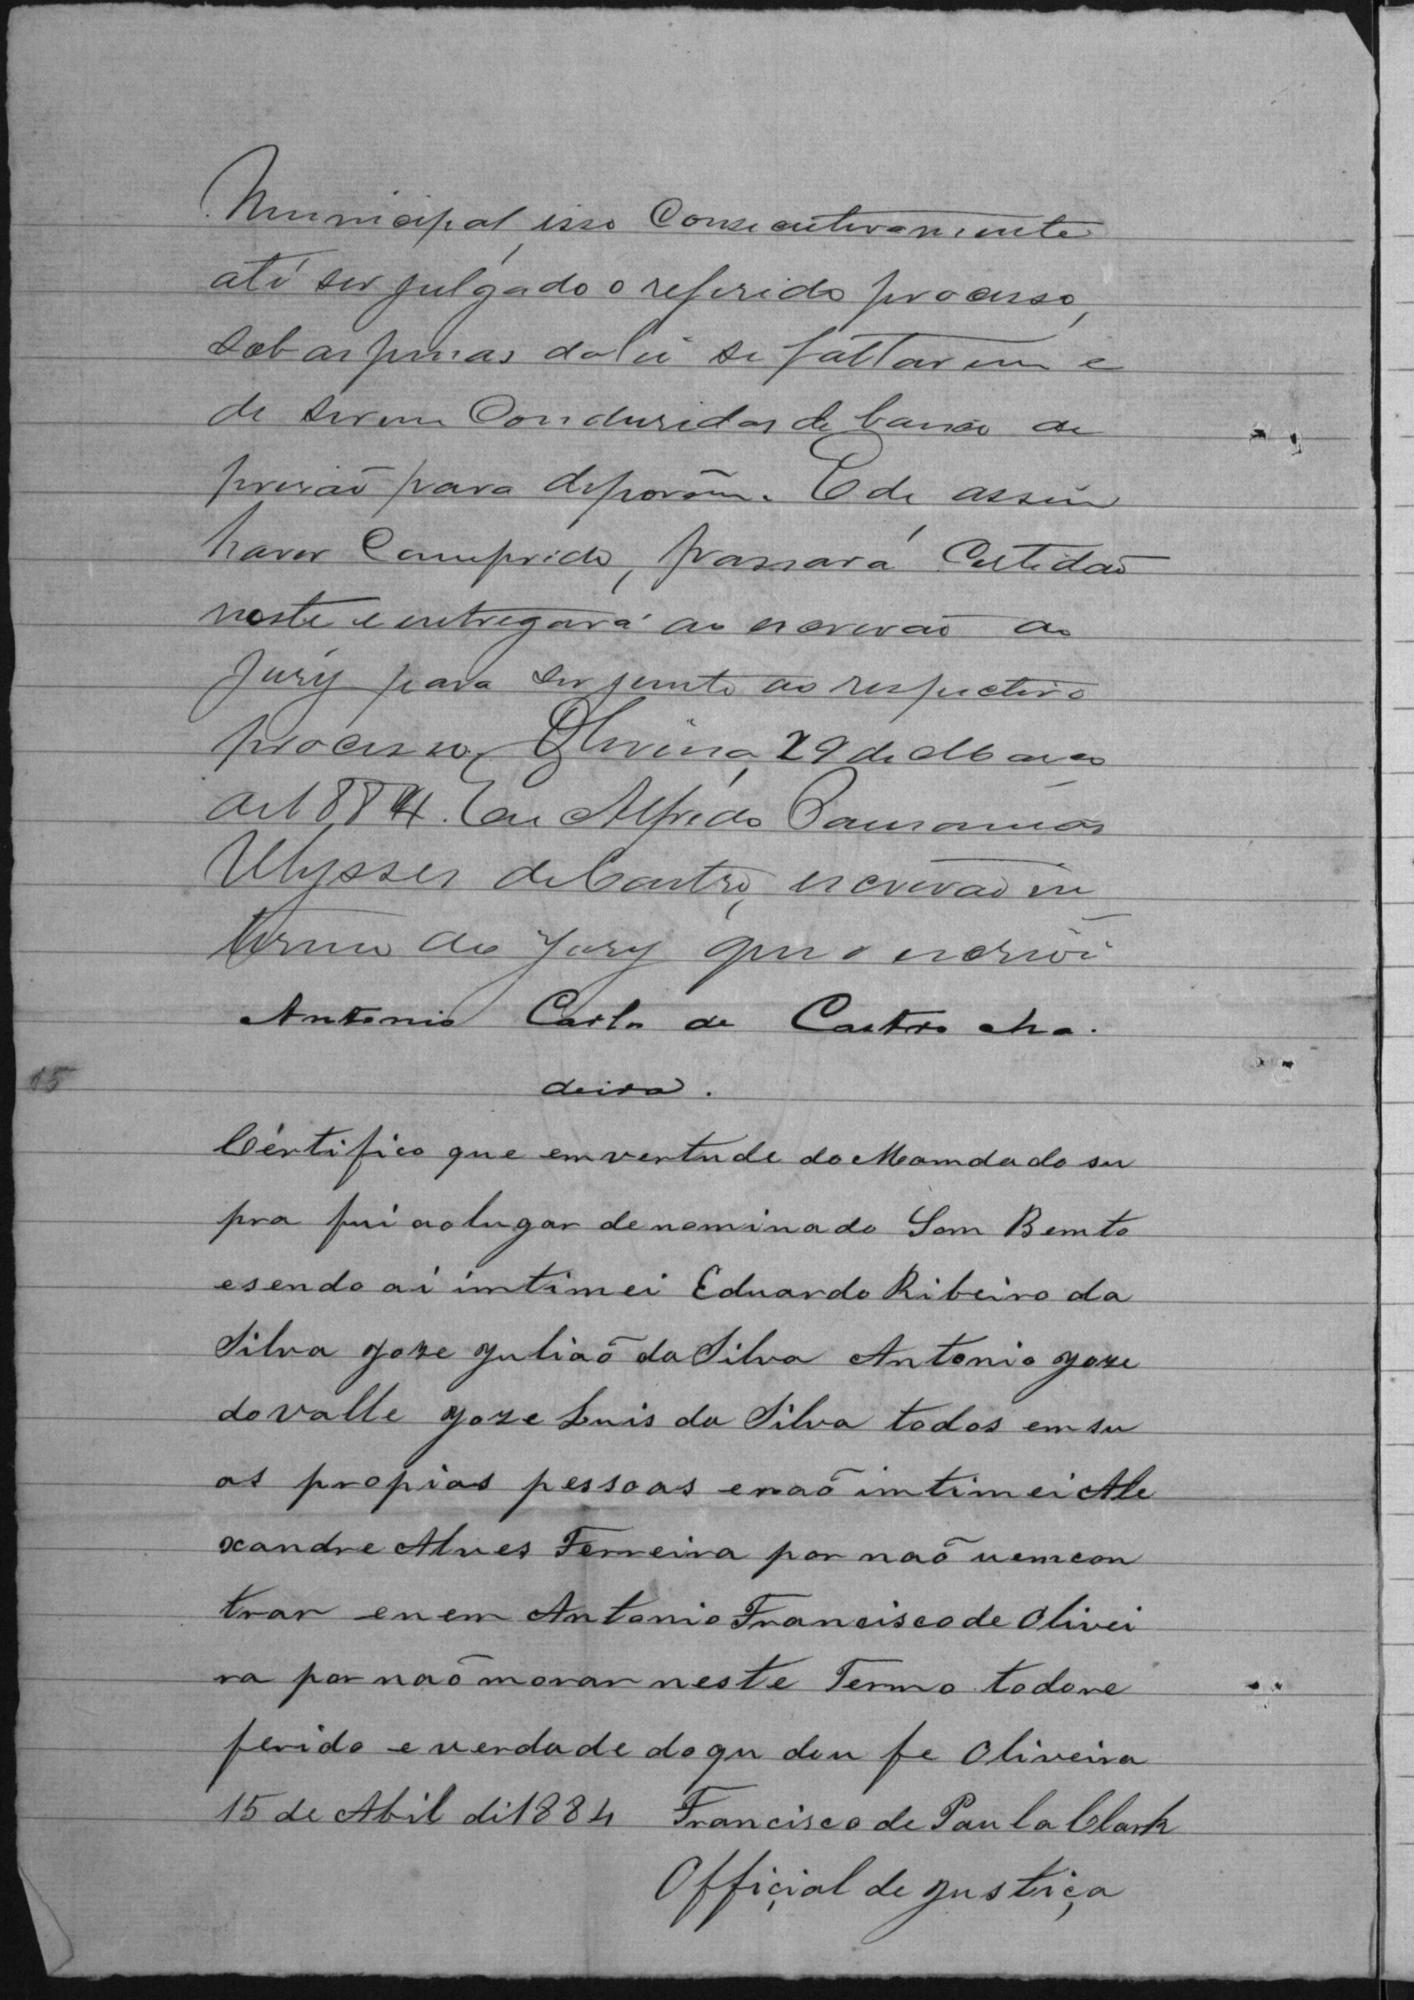 Municipal, isso Consecutivamente
até ser julgado o referido processo,
sob as penas da lei se faltarem e
de serem Conduzidas debaixo de
prizão para deporem. E de assim
haver Comprido, passará Certidão
neste e entregará ao escrivão do
Jury para ser junto ao respectivo
processo. Oliveira, 29 de Março
de 1884. Eu Alfredo
Ulysses de Castro, escrivão in
terino do Jury que o escrevi
Antonio Carlos de Castro Ma.
deira.
15
Cértifico que em vertude do Mamdado su
pra fui ao lugar denominado Sam Bemto
e sendo ai imtimei Eduardo Ribeiro da
Silva Joze Julião da Silva Antonio Joze
do valle Joze Luis da Silva todos em su
as propias pessoas e não imtimei Ale
xandre Alves Ferreira por não u emcon
trar e nem Antonio Francisco de Olivei
ra por não morar neste Termo todo re
ferido e verdade do qu dou fe Oliveira
15 de Abil di 1884 Francisco de Paula Clark
Offiçial de justiça